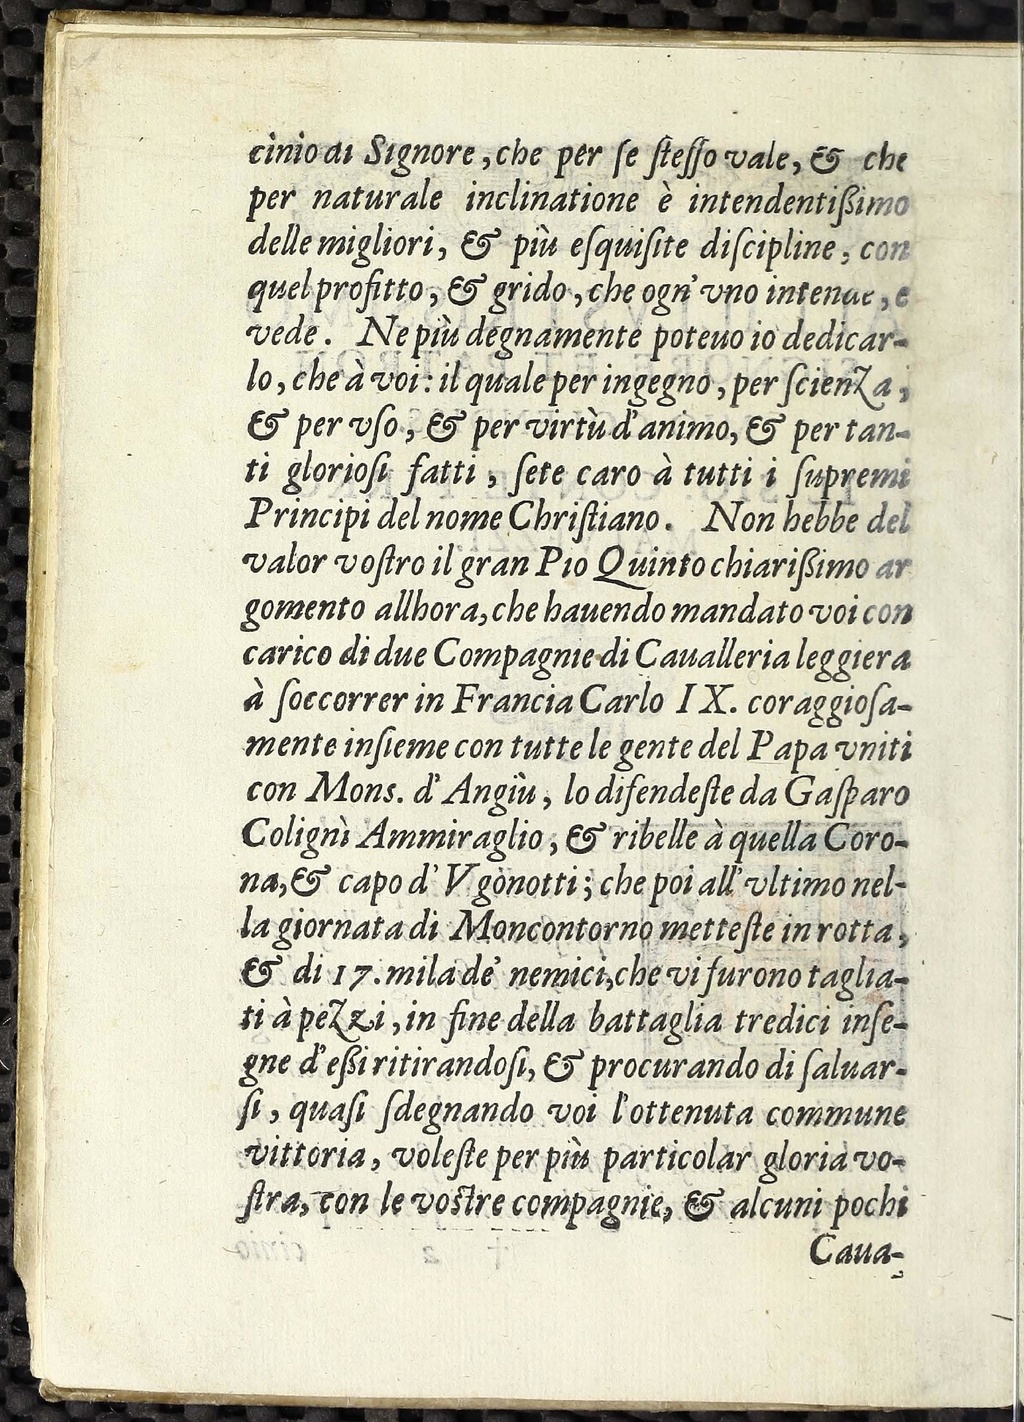 cinio di Signore, che per se ſteſſo vale, & che
per naturale inclinatione è intendentißimo
delle migliori, & più eſquiſite diſcipline, con
quel profitto, & grido, che ogn'vno intende, e
vede. Ne più degnamente poteuo io dedicar-
lo, che à voi: il quale per ingegno, per ſcienza,
& per vſo, & per virtù d'animo, & per tan-
ti glorioſi fatti, ſete caro à tutti i ſupremi
Principi del nome Chriſtiano. Non hebbe del
valor voſtro il gran Pio Quinto chiarißimo ar
gomento allhora, che hauendo mandato voi con
carico di due Compagnie di Caualleria leggiera
à ſoccorrer in Francia Carlo IX. coraggioſa-
mente inſieme con tutte le gente del Papa vniti
con Mons. d'Angiù, lo difendeſte da Gaſparo
Colignì Ammiraglio, & ribelle à quella Coro-
na, & capo d'Vgonotti; che poi all'vltimo nel-
la giornata di Moncontorno metteſte in rotta,
& di 17. mila de' nemici, che vi furono taglia-
ti à pezzi, in fine della battaglia tredici inſe-
gne d'eßi ritirandoſi, & procurando di ſaluar-
ſi, quaſi ſdegnando voi l'ottenuta commune
vittoria, voleſte per più particolar gloria vo-
ſtra, con le voſtre compagnie, & alcuni pochi
Caua-